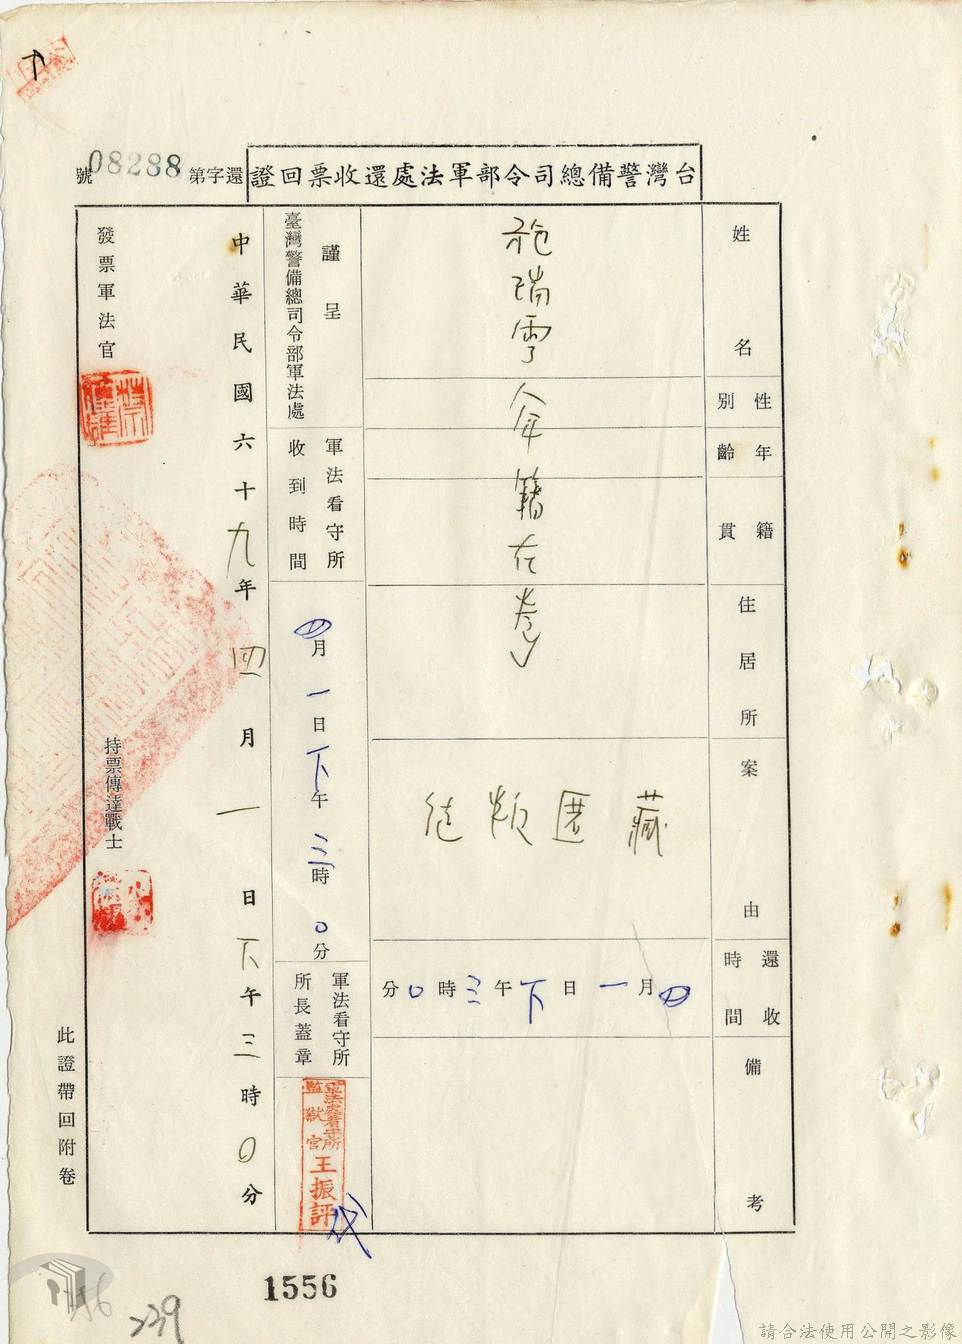 台灣警備總司令部軍法處還收票回證
還字第08288號
姓名
施瑞雲
性別
年齡
籍貫
住居所
年籍在卷
案由
藏匿叛徒
還收時間
四月一日下午三時0分
備考
謹呈
臺灣警備總司令部軍法處
軍法看守所收到時間
四月一日下午三時0分
軍法看守所所長蓋章
軍法處看守所
監獄官
王振評
代
中華民國六十九年四月一日下午三時0分
發票軍法官
持票傳達戰士
此證帶回附卷
1556
239
請合法使用公開之影像